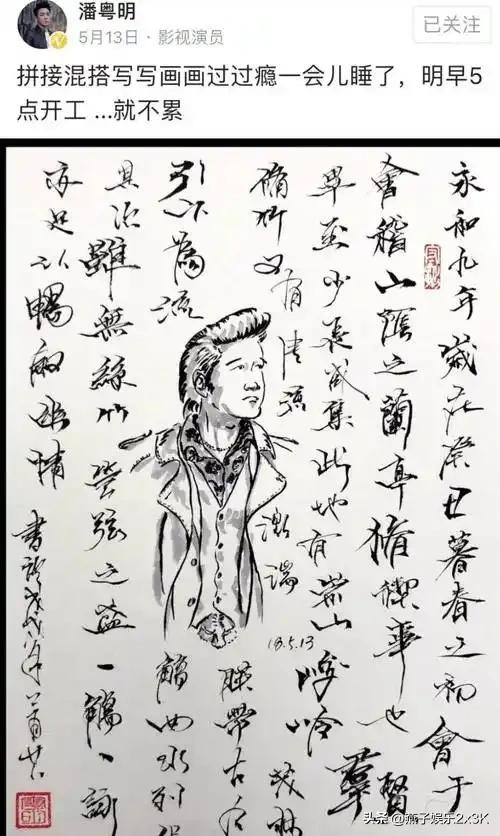 潘粤明
5月13日 · 影视演员
已关注
拼接混搭写写画画过过瘾一会儿睡了，明早5
点开工 ...就不累
永和九年歲在癸丑暮春之初會于
會稽山陰之蘭亭脩禊事也羣賢
畢至少長咸集此地有崇山峻岭茂林
脩竹又有清流激湍
映帶左右
引以為流
觴曲水列坐
其次雖無絲竹管弦之盛一觴一詠
亦足以暢敘幽情
18.5.13
头条 @燕子娱乐2x3K